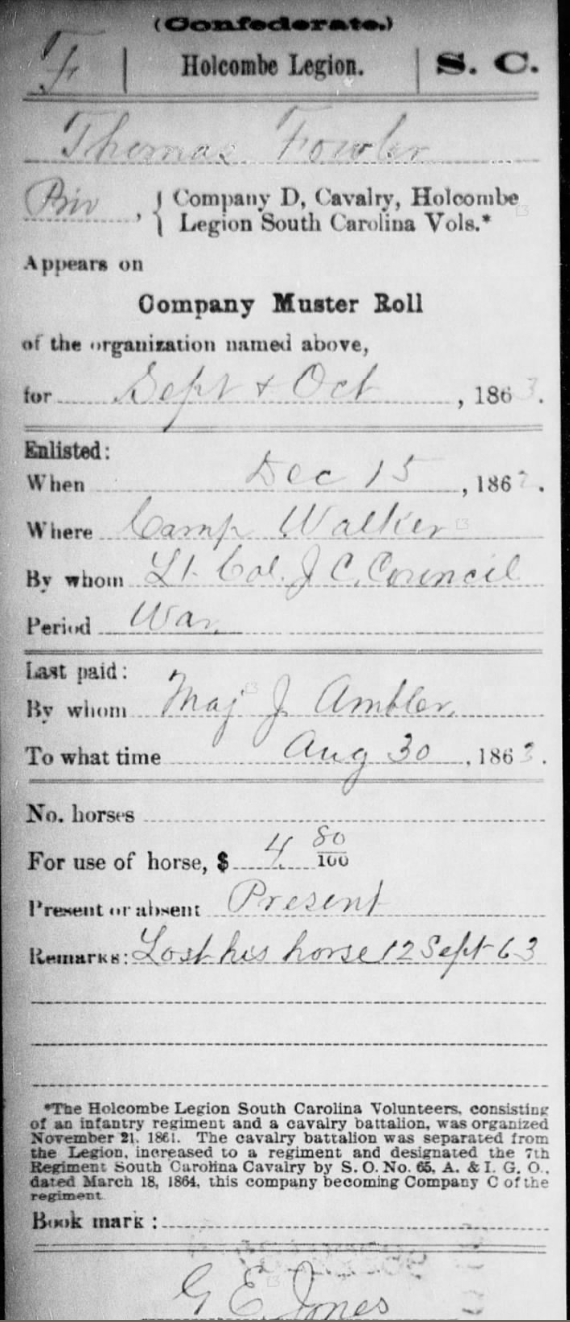 (Confederate.)
F | Holcombe Legion. | S. C.
Thomas Fowler
Priv, { Company D, Cavalry, Holcombe
Legion South Carolina Vols.*
Appears on
Company Muster Roll
of the organization named above,
for Sept & Oct, 1863.
Enlisted:
When Dec 15, 1862.
Where Camp Walker
By whom Lt. Col. J C. Council
Period War
Last paid:
By whom Maj J. Ambler
To what time Aug 30, 1863.
No. horses
For use of horse, $ 4 80/100
Present or absent Present
Remarks: Lost his horse 12 Sept 63
*The Holcombe Legion South Carolina Volunteers, consisting
of an infantry regiment and a cavalry battalion, was organized
November 21, 1861. The cavalry battalion was separated from
the Legion, increased to a regiment and designated the 7th
Regiment South Carolina Cavalry by S. O. No. 65, A. & I. G. O.,
dated March 18, 1864, this company becoming Company C of the
regiment.
Book mark:
G E. Jones